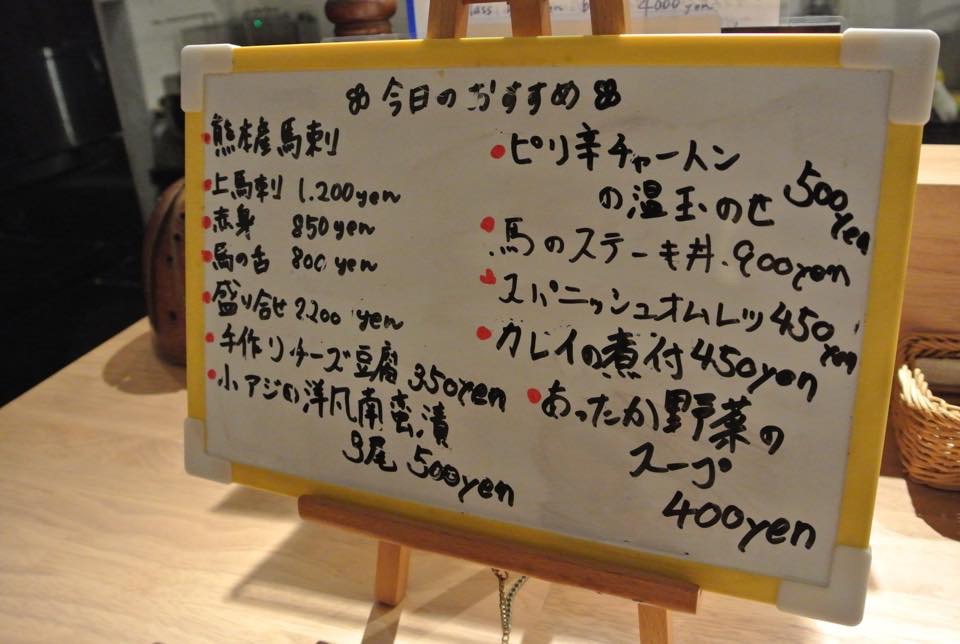 4000yen
今日のおすすめ
熊本産馬刺
上馬刺 1.200yen
赤身 850yen
馬の舌 800yen
盛り合せ 2.200yen
手作りチーズ豆腐 350yen
小アジの洋風南蛮漬
3尾 500yen
ピリ辛チャートン
の温玉のせ 500yen
馬のステーキ丼.900yen
スパニッシュオムレツ450yen
カレイの煮付450yen
あったか野菜の
スープ
400yen